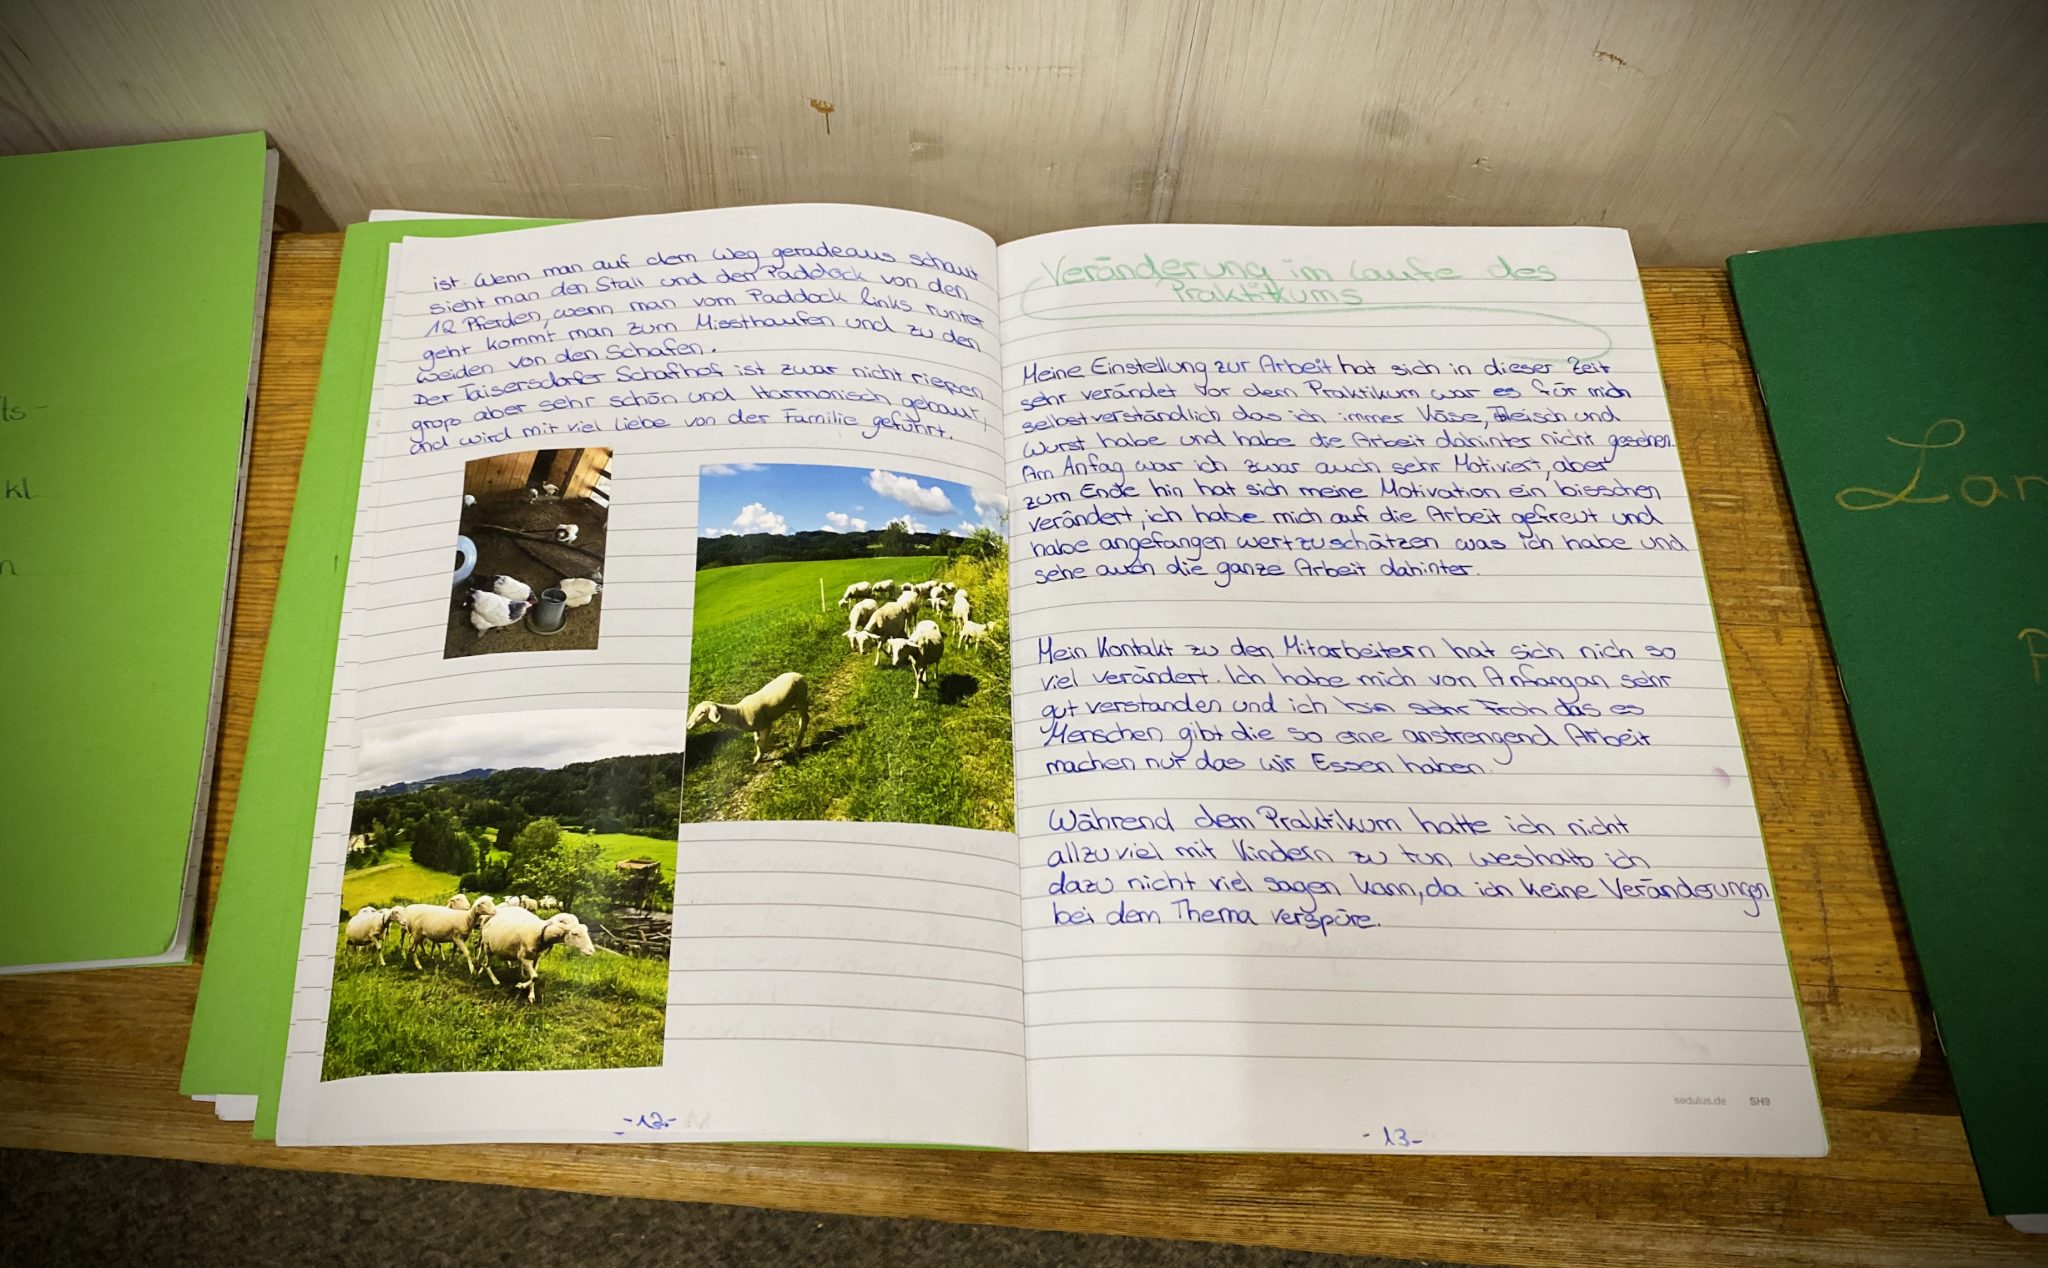 ts-
kl
n
ist. Wenn man auf dem Weg geradeaus schaut
sieht man den Stall und den Paddock von den
12 Pferden, wenn man vom Paddock links runter
geht kommt man zum Missthaufen und zu den
Weiden von den Schafen.
Der Taisersdorfer Schafhof ist zwar nicht rießen
groß aber sehr schön und Harmonisch gebaut,
und wird mit viel Liebe von der Familie geführt.
-12-
Veränderung im Laufe des
Praktikums
Meine Einstellung zur Arbeit hat sich in dieser Zeit
sehr verändet Vor dem Praktikum war es für mich
selbstverständlich das ich immer Käse, Fleisch und
Wurst habe und habe die Arbeit dahinter nicht gesehen.
Am Anfag war ich zwar auch sehr Motiviert, aber
zum Ende hin hat sich meine Motivation ein bisschen
verändert, ich habe mich auf die Arbeit gefreut und
habe angefangen wertzuschätzen was ich habe und
sehe auch die ganze Arbeit dahinter.
Mein Kontakt zu den Mitarbeitern hat sich nich so
viel verändert. Ich habe mich von Anfangan sehr
gut verstanden und ich bin sehr Froh das es
Menschen gibt die so eine anstrengend Arbeit
machen nur das wir Essen haben.
Während dem Praktikum hatte ich nicht
allzuviel mit Kindern zu tun weshalb ich
dazu nicht viel sagen kann, da ich keine Veränderungen
bei dem Thema verspüre.
sedulus.de SH9
-13-
Lan